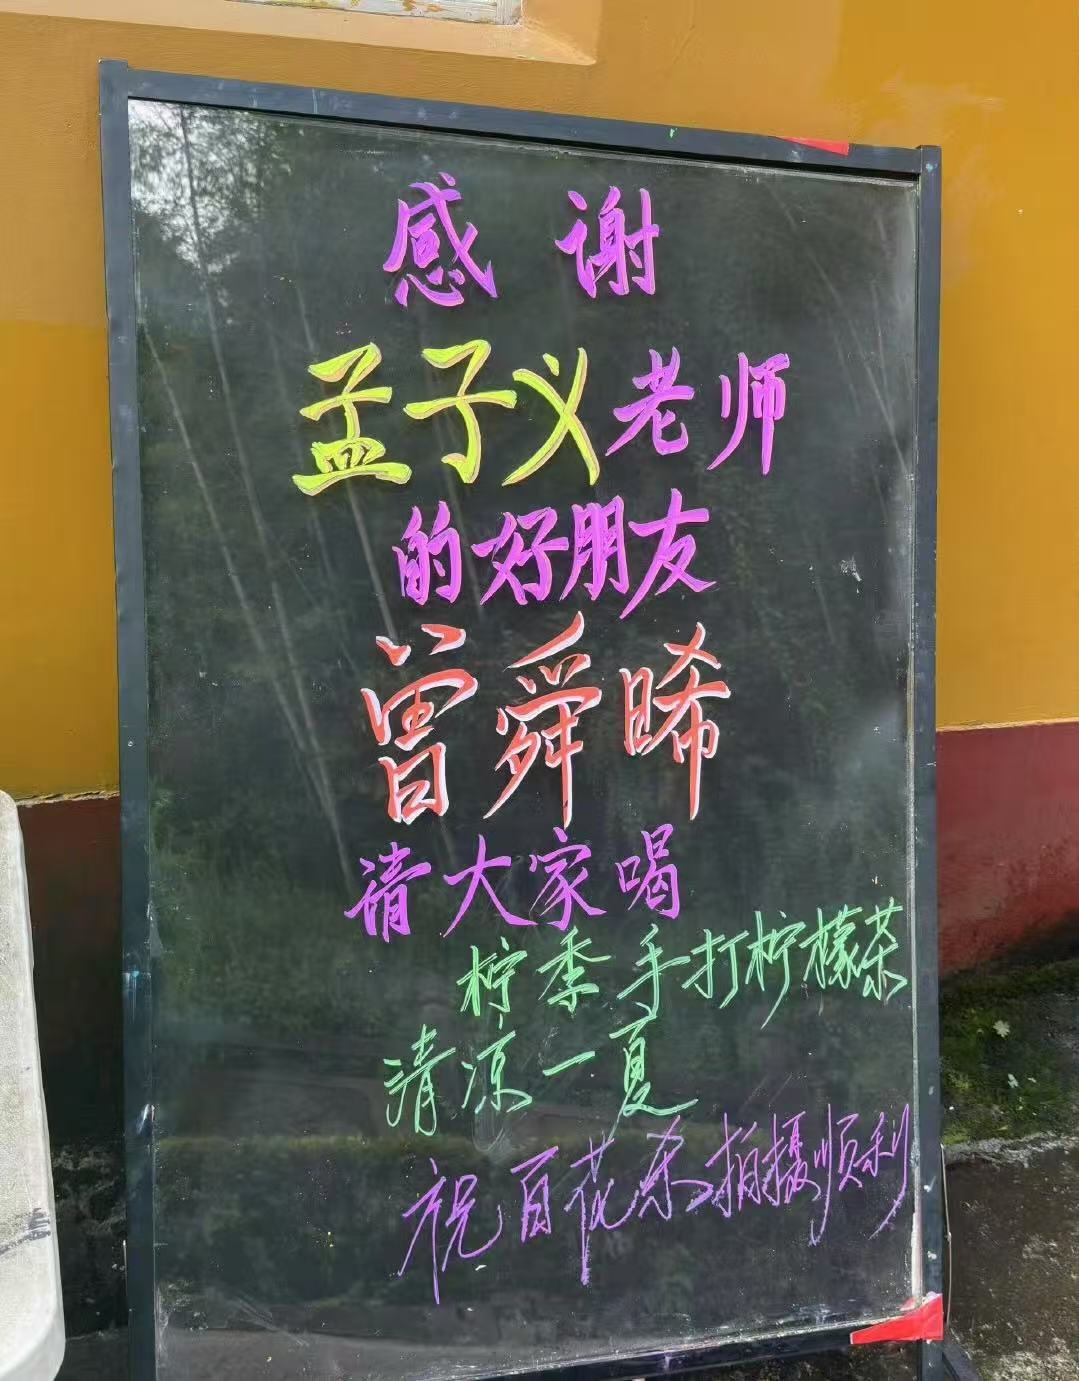 感谢
孟子义老师
的好朋友
曾舜晞
请大家喝
柠季手打柠檬茶
清凉一夏
祝百花杀拍摄顺利